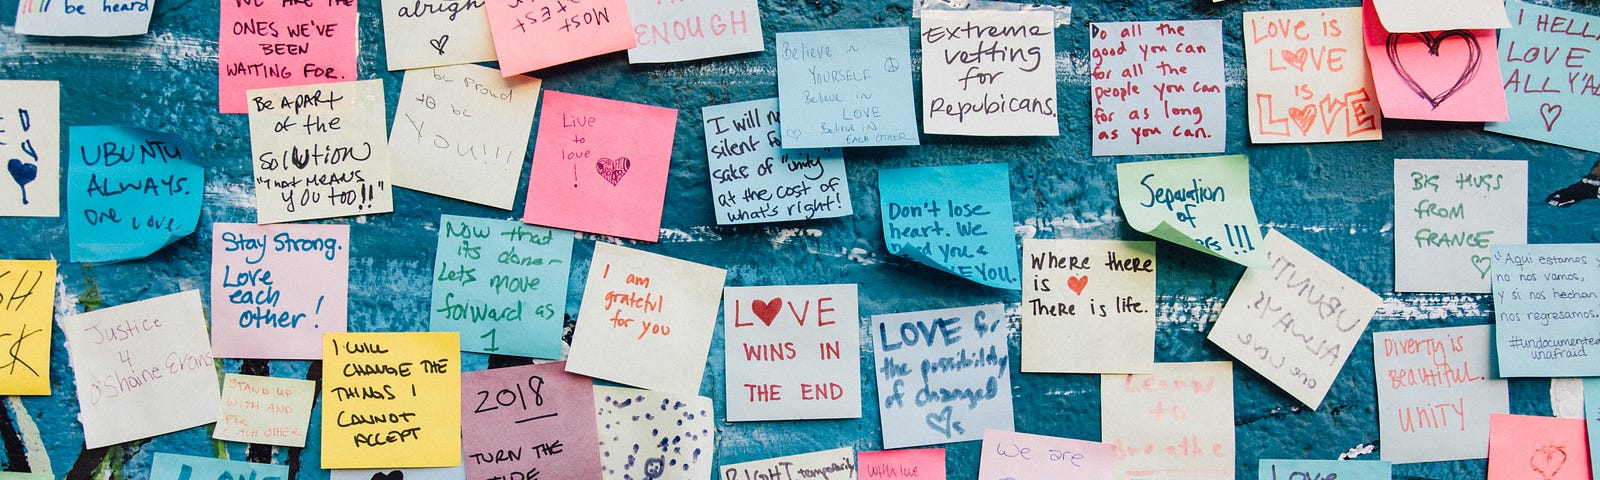 be heard
WE ARE THE
ONES WE'VE
BEEN
WAITING FOR.
alright
MOST
ENOUGH
Believe in
YOURSELF
Believe in
LOVE
Believe in
EACH OTHER
Extreme
vetting
for
Repubicans.
Do all the
good you can
for all the
people you can
for as long
as you can.
LOVE is
LOVE
is
LOVE
I HELLA
LOVE
ALL Y'ALL
UBUNTU
ALWAYS.
one love
Be A PART
of the
SOLUTION
"THAT MEANS
YOU TOO!!"
be proud
to be
YOU!!!
Live
to
love
!
I will
silent for
sake of "unity"
at the cost of
what's right!
Don't lose
heart. We
need you &
LOVE YOU.
Separation
of
!!!
BIG HUGS
FROM
FRANCE
Stay Strong.
Love
each
other!
Now that
its done-
Lets move
forward as
1
I am
grateful
for you
Where there
is
There is life.
UBUNTU
ALWAYS.
one love
"Aqui estamos y
no nos vamos,
y si nos hechan
nos regresamos.
#undocumented
unafraid
Justice
4
O'Shaine Evans
STAND UP
WITH AND
FOR
EACH OTHER
I WILL
CHANGE THE
THINGS I
CANNOT
ACCEPT
2018
TURN THE
TIDE
LOVE
WINS IN
THE END
LOVE for
the possibility
of changed
Learn
to
breathe
Diverty is
Beautiful.
UNITY
LOVE
RIGHT temporarily
with love
we are
Love